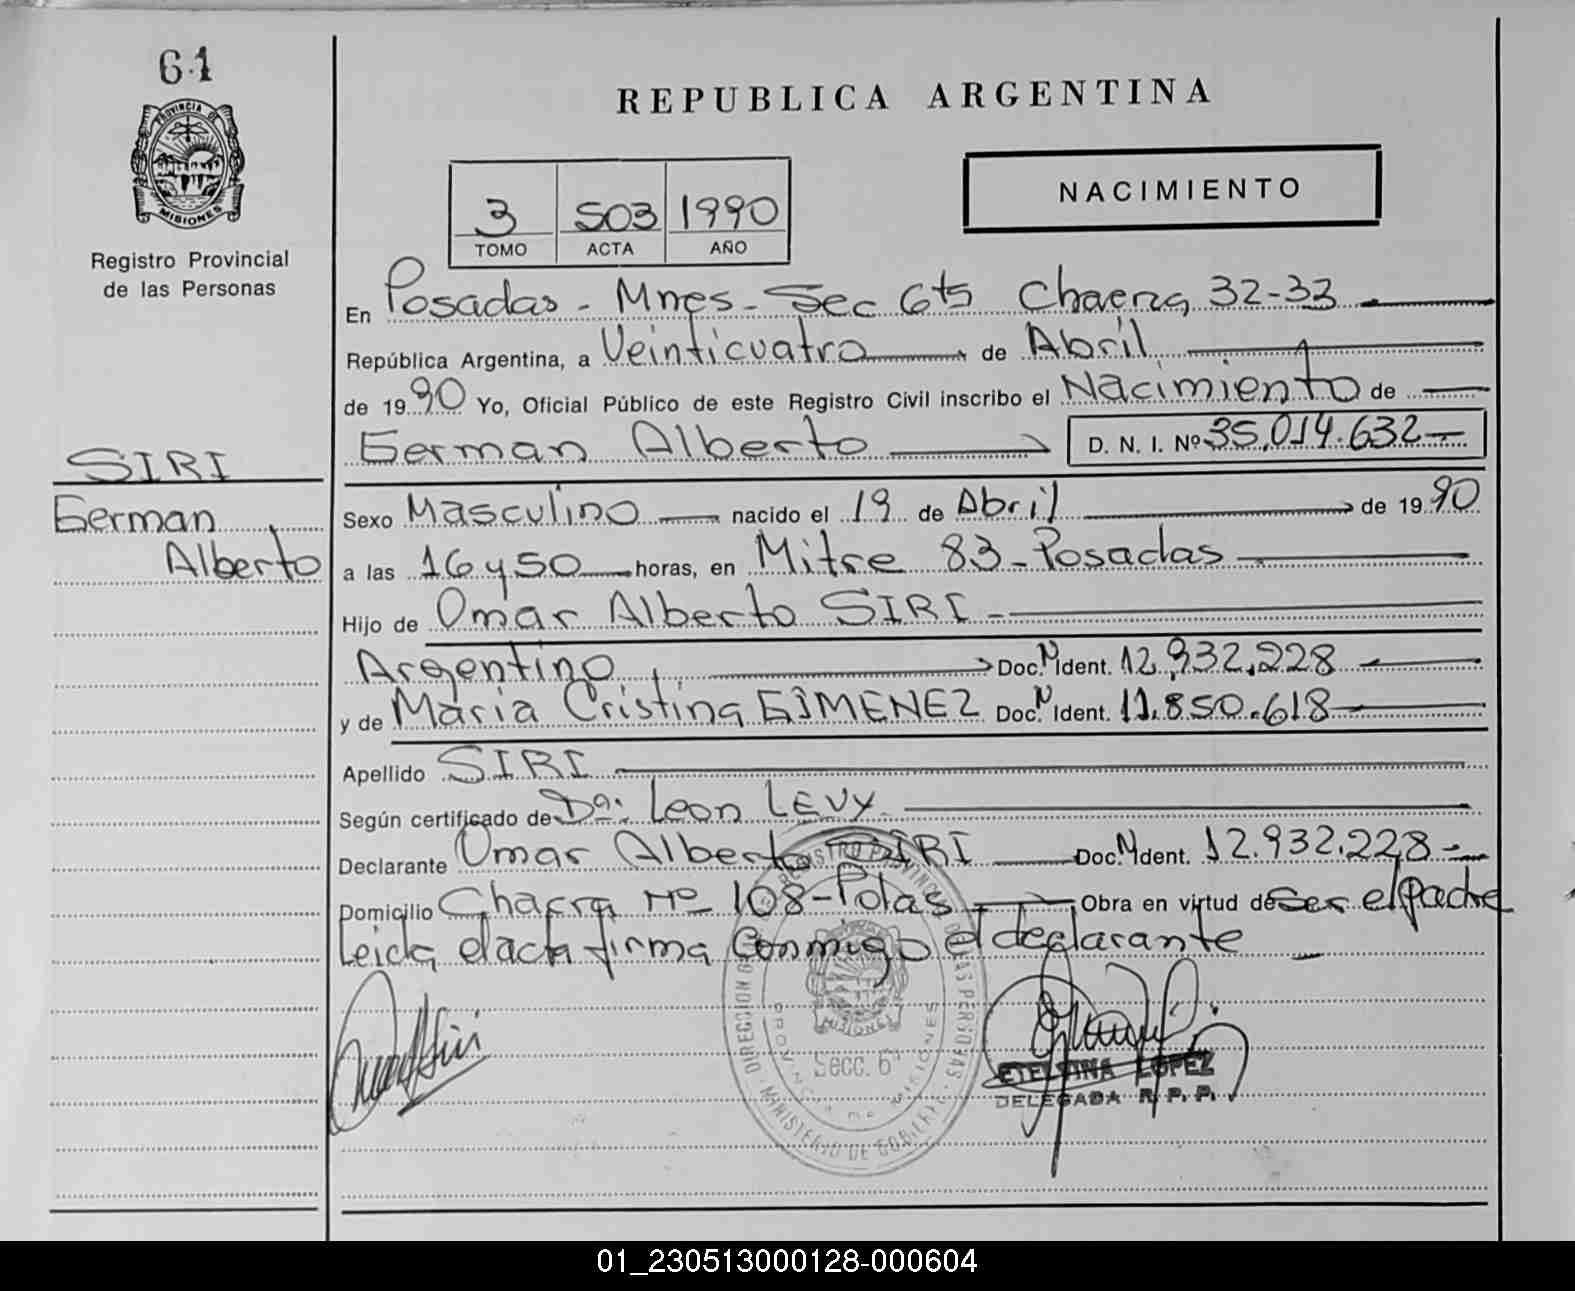 61
PROVINCIA DE
MISIONES
Registro Provincial
de las Personas
SIRI
German
Alberto
REPUBLICA ARGENTINA
NACIMIENTO
3 503 1990
TOMO ACTA AÑO
En Posadas - Mnes - Sec 6ts Chacra 32-33
República Argentina, a Veinticuatro de Abril
de 1990 Yo, Oficial Público de este Registro Civil inscribo el Nacimiento de
German Alberto D. N. I. Nº 35.014.632
Sexo Masculino nacido el 19 de Abril de 1990
a las 16 y 50 horas, en Mitre 83 - Posadas
Hijo de Omar Alberto SIRI
Argentino Doc. N Ident. 12.932.228
y de Maria Cristina GIMENEZ Doc. N Ident. 11.850.618
Apellido SIRI
Según certificado de Da: Leon LEVY
Declarante Omar Alberto SIRI Doc. N Ident. 12.932.228
Domicilio Chacra Nº 108 - Pdas Obra en virtud de ser el padre
Leida el acta firma conmigo el declarante
REGISTRO PROVINCIAL DE LAS PERSONAS
MISIONES
Secc. 6ª
PROVINCIA DE MISIONES
MINISTERIO DE GOBIERNO
ETELVINA LOPEZ
DELEGADA R. P. P.
01_230513000128-000604